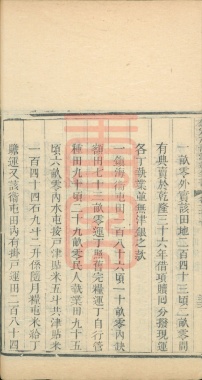 一畝零外實該田地二百四十三頃二畝零間
有典賣於乾隆三十六年借項贖回分撥現運
各丁執業並無津銀之款
一鎮海衛屯田二百八十六頃一十畝零內缺
額田七十三畝零運丁屋僑完糧運丁自行管
種田九十頃二十九畝零民人執業田九十五
頃六畝零內水屯按戸津貼米五斗共津貼米
一百四十四石九斗二升係隨月糧屯米給丁
贍運又該衛屯田內有掛戸運田二百八十四